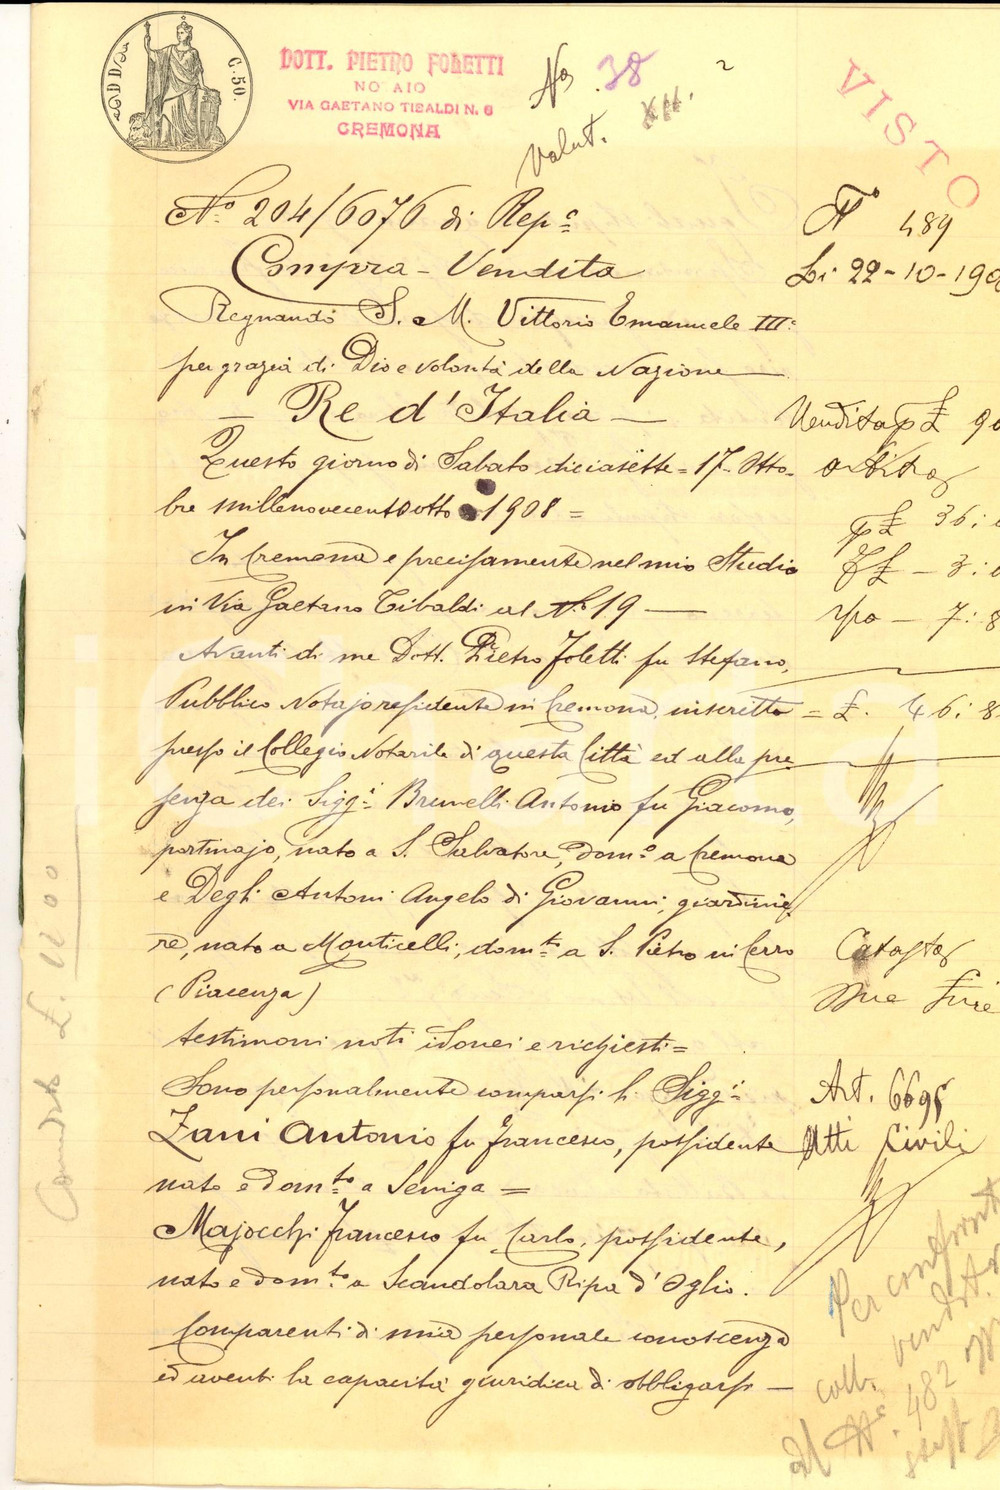 C. 50.
DOTT. PIETRO FOLETTI
NOTAIO
VIA GAETANO TIBALDI N. 6
CREMONA
No. 38
Valut. XII.
VISTO
N.º 204/6076 di Rep.º
Compra - Vendita
Regnando S. M. Vittorio Emanuele III.º
per grazia di Dio e volontà della Nazione —
— Re d'Italia —
Questo giorno di Sabato diciasette = 17 - Otto-
bre millenovecentootto 1908 =
In Cremona e precisamente nel mio Studio
in Via Gaetano Tibaldi al N.º 19 —
Avanti di me Dott. Pietro Foletti fu Stefano,
Pubblico Notajo residente in Cremona, inscritto
presso il Collegio Notarile di questa Città ed alla pre
senza dei Sigg.i Brunelli Antonio fu Giacomo,
portinajo, nato a S. Salvatore, dom.º a Cremona
e Degli Antoni Angelo di Giovanni, giardinie
re, nato a Monticelli, dom.to a S. Pietro in Cerro
(Piacenza)
testimoni noti idonei e richiesti =
Sono personalmente comparsi li Sigg.i
Zani Antonio fu Francesco, possidente
nato e dom.to a Seniga =
Majocchi Francesco fu Carlo, possidente,
nato e dom.to a Scandolara Ripa d'Oglio.
Comparenti di mia personale conoscenza
ed aventi la capacità giuridica di obbligarsi —
Nº 489
Li 22-10-190
Vendita p £ 90
p £ 36:
£ — 3:
— 7:8
= £. 46:8
Catasto
Due
Art. 6695
Atti Civili
Per
vendit.
coll.
al Nº 482
£. 1200